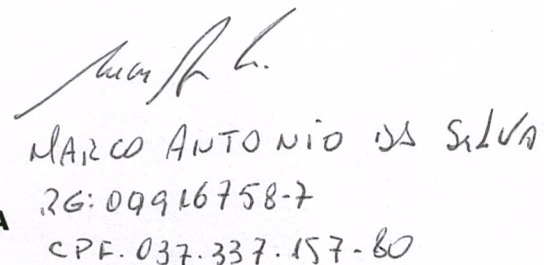 MARCO ANTONIO DA SILVA
RG: 09916758-7
A
CPF. 037.337.157-80